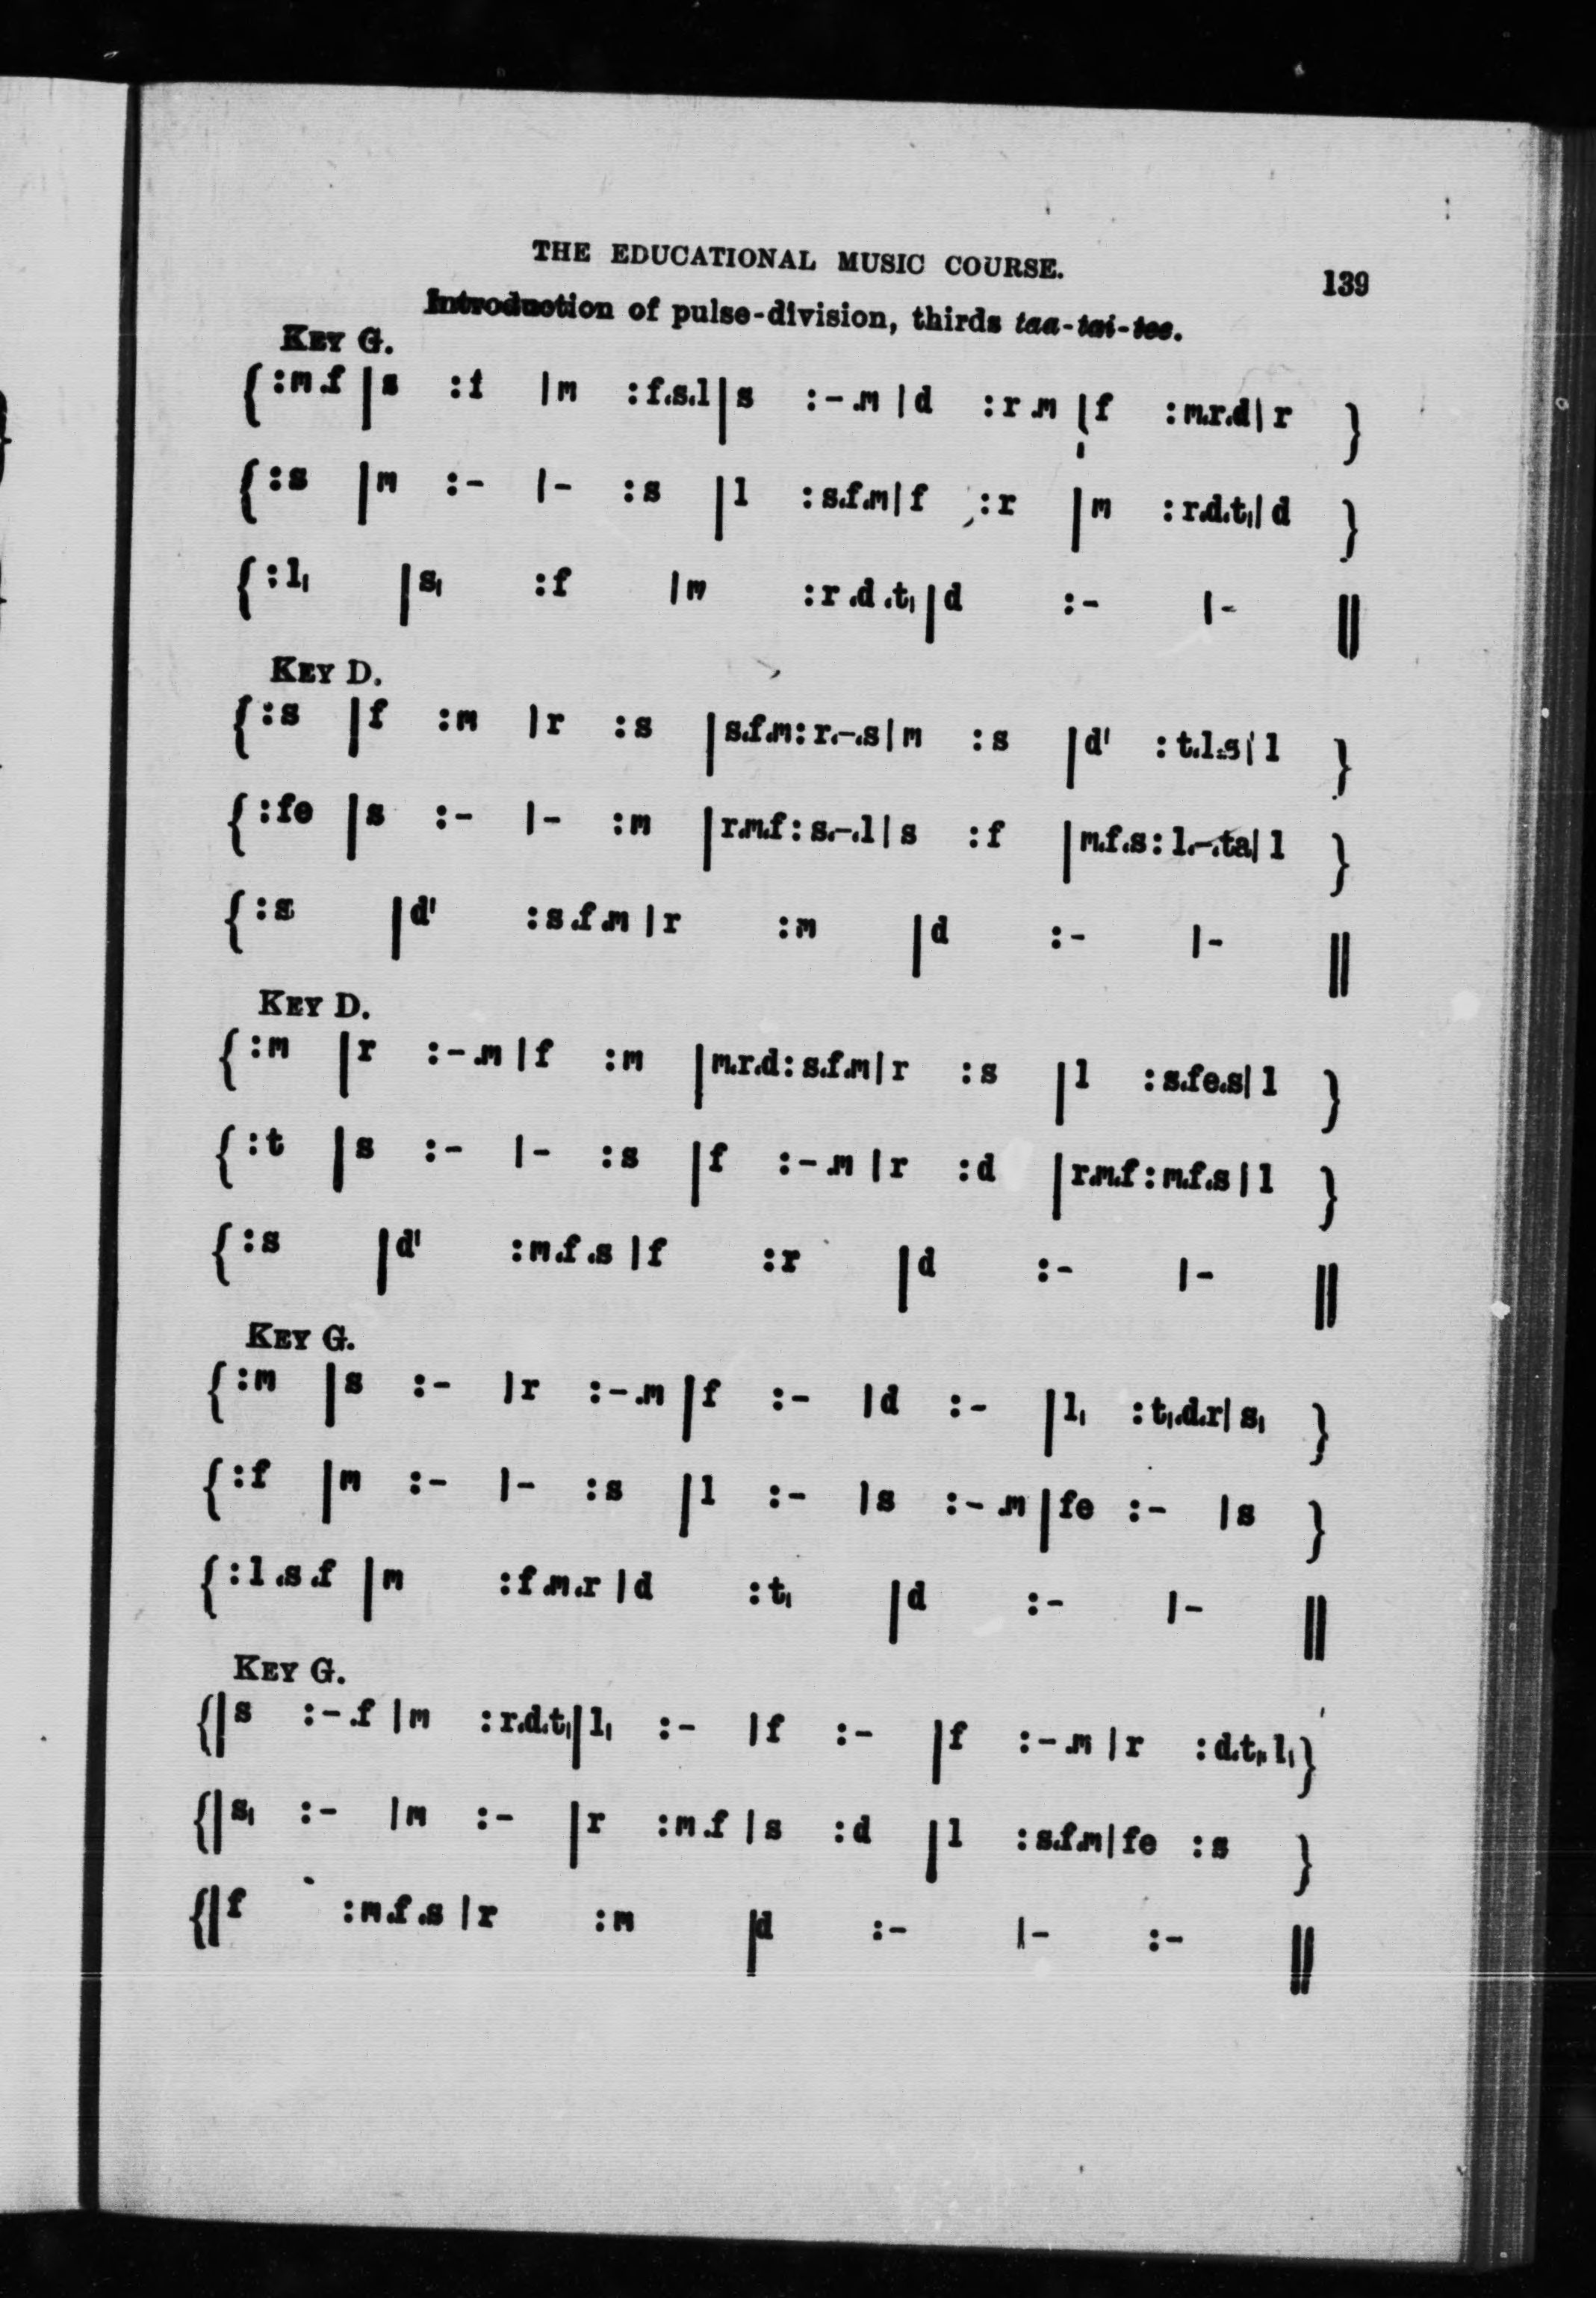 THE EDUCATIONAL MUSIC COURSE. 139
Introduction of pulse-division, thirds taa-tai-tee.
KEY G.
{ :m .f | s :f | m :f.s.l | s :- .m | d :r .m | f :m.r.d | r }
{ :s | m :- | - :s | l :s.f.m | f :r | m :r.d.t, | d }
{ :l, | s, :f | m :r .d .t, | d :- | - ||
KEY D.
{ :s | f :m | r :s | s.f.m : r.-.s | m :s | d' :t.l.s | l }
{ :fe | s :- | - :m | r.m.f : s.-.l | s :f | m.f.s : l.-.ta | l }
{ :s | d' :s .f .m | r :m | d :- | - ||
KEY D.
{ :m | r :- .m | f :m | m.r.d : s.f.m | r :s | l :s.fe.s | l }
{ :t | s :- | - :s | f :- .m | r :d | r.m.f : m.f.s | l }
{ :s | d' :m.f .s | f :r | d :- | - ||
KEY G.
{ :m | s :- | r :- .m | f :- | d :- | l, :t,.d.r | s, }
{ :f | m :- | - :s | l :- | s :- .m | fe :- | s }
{ :l .s .f | m :f .m .r | d :t, | d :- | - ||
KEY G.
{| s :- .f | m :r.d.t, | l, :- | f :- | f :- .m | r :d.t,.l, }
{| s, :- | m :- | r :m .f | s :d | l :s.f.m | fe :s }
{| f :m.f .s | r :m | d :- | - :- ||